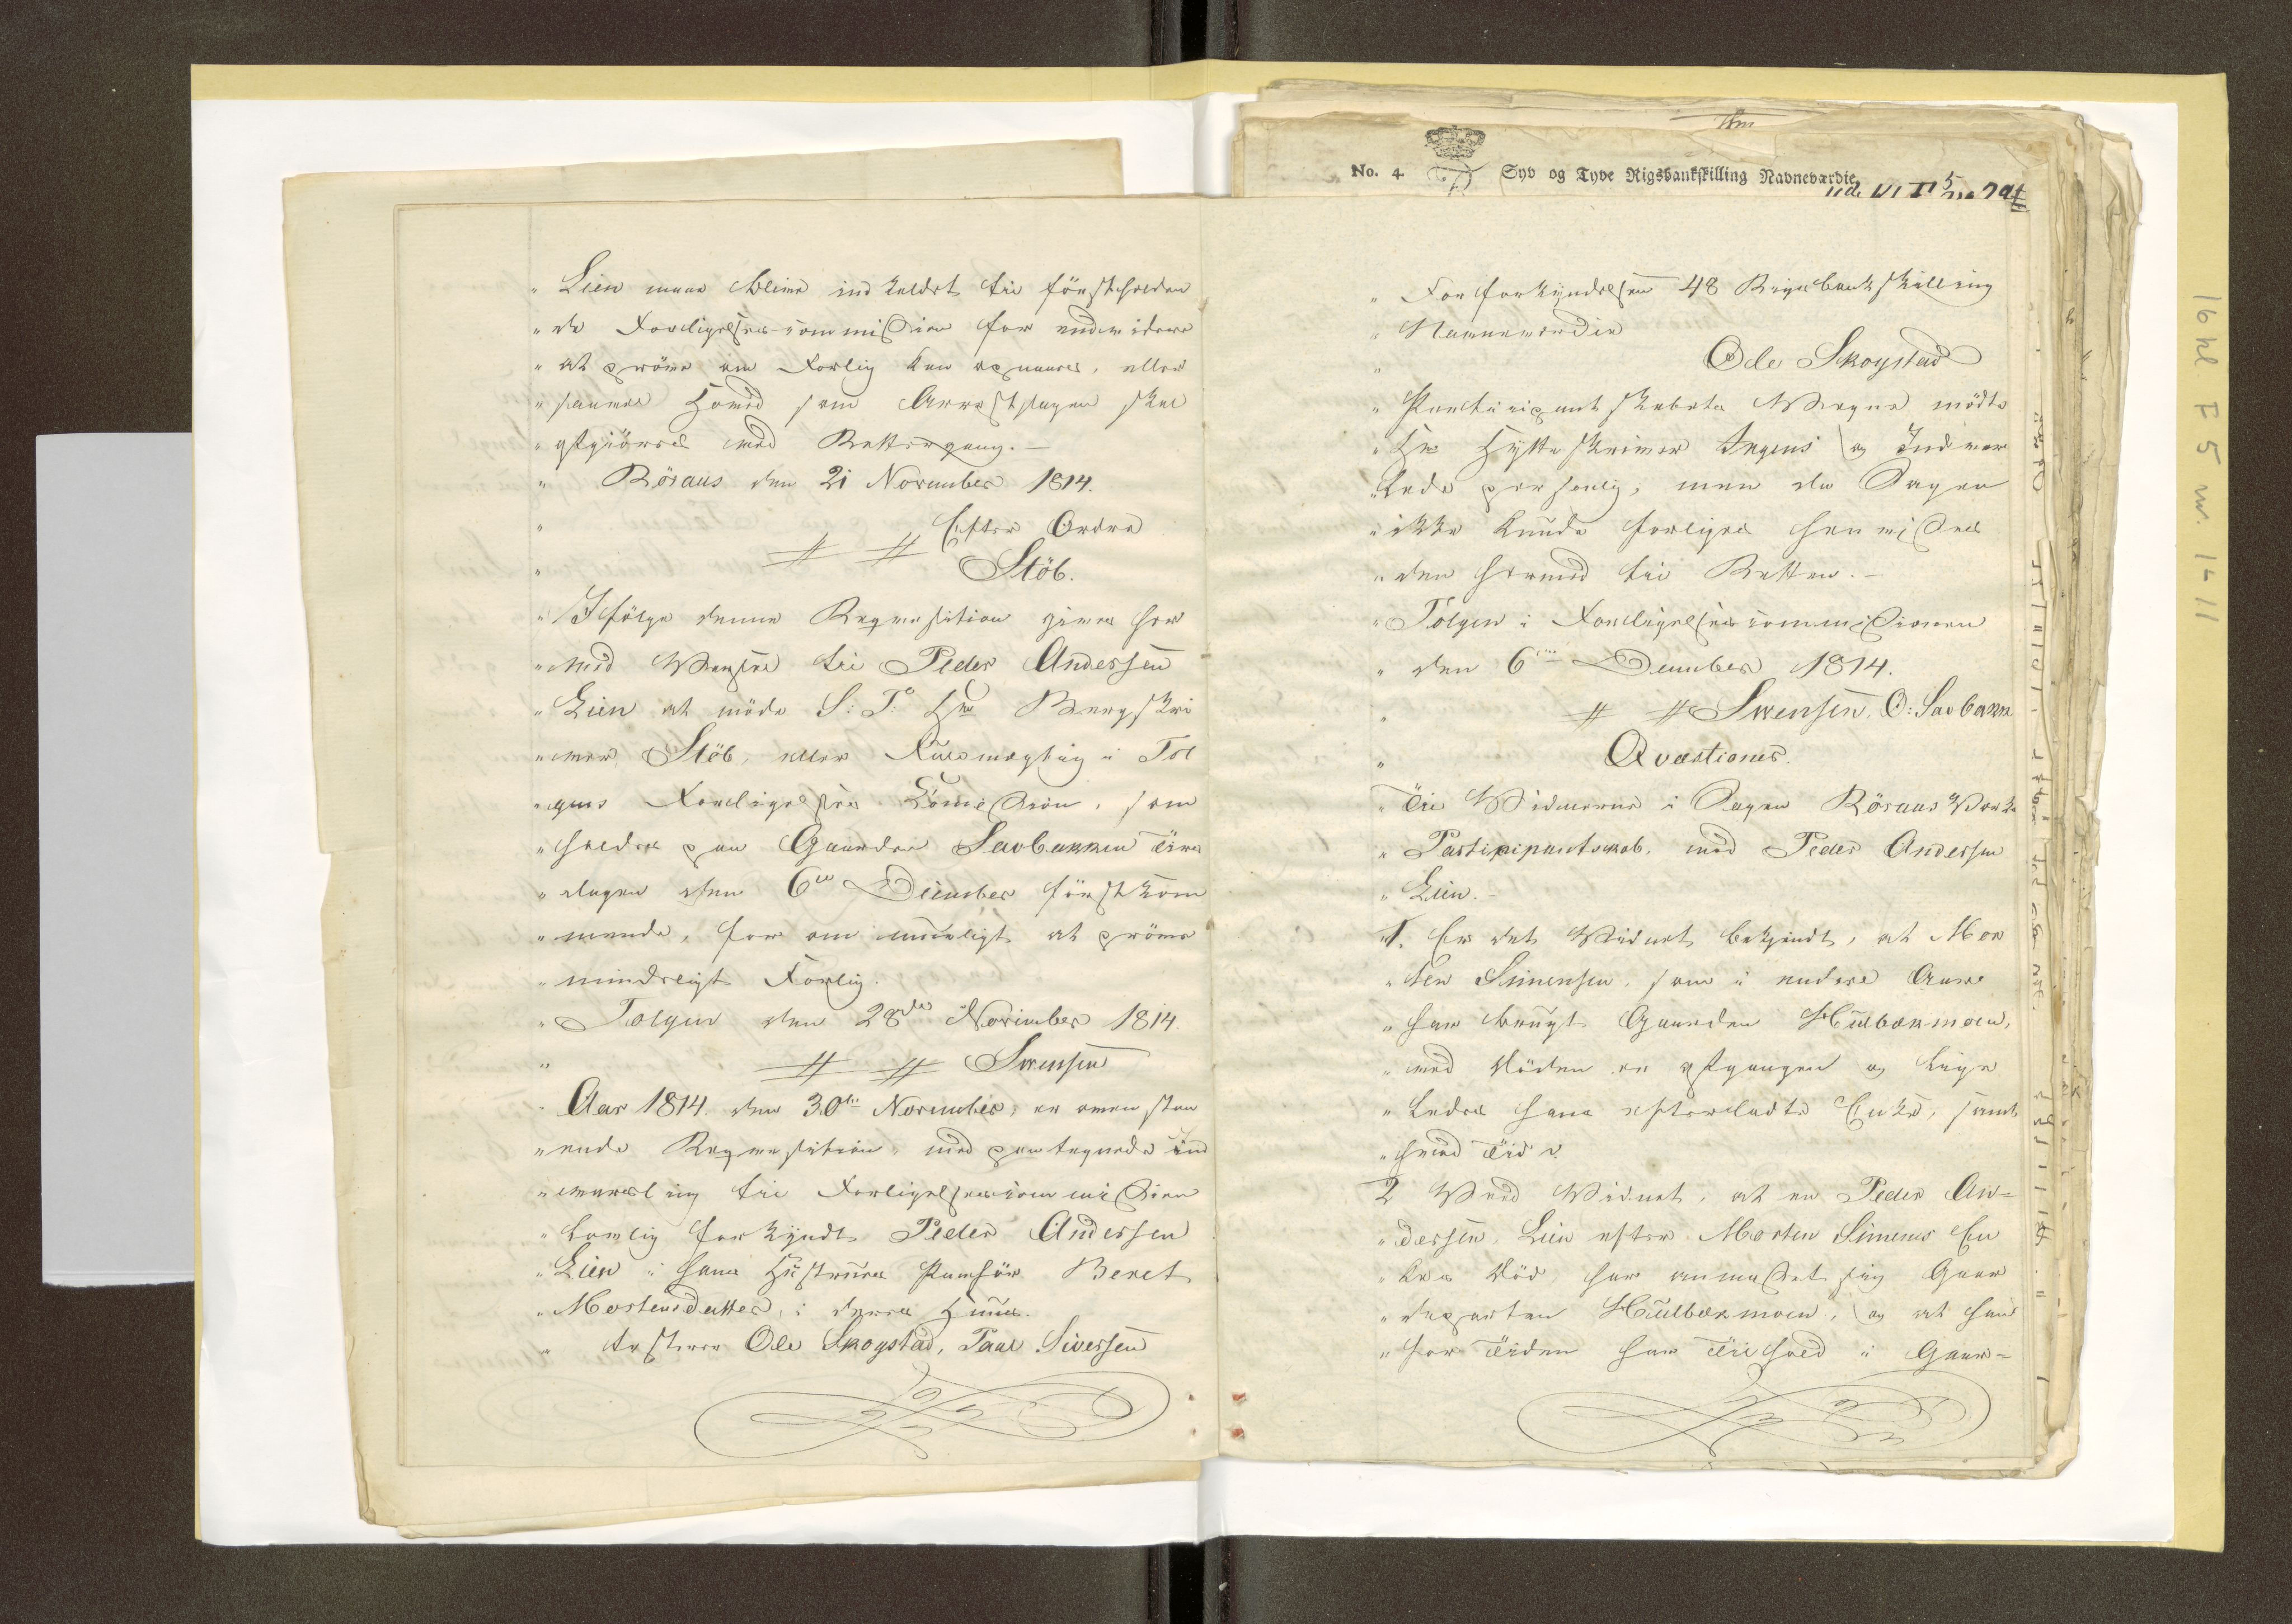 " Lien maae blive indkaldet til förstholden
" de Forligelsescommission for endvidere
" at pröve om Forlig kan opnaaes, eller
" samme Hoved som Arrestsagen skal
" afgjöres med Rettergang.-
" Röraas den 21 November 1814.
" Efter Ordre
" Stöb.
" Ifölge denne Reqvesition gives her
" ved Varsel til Peder Andersen
" Lien at möde S: T: Hr Bergskri
" ver Stöb, eller Fuldmægtig i Tol
" gens Forligelses Comission, som
" holdes paa Gaarden Savbakken Tirs
" dagen den 6te December förstkom
" mende, for om mueligt at pröve
" mindeligt Forlig.
" Tolgen den 28de November 1814.
" Svensen
" Aar 1814. den 30te November, er ovenstaa
" ende Reqvesition, med paategnede ind
" varsling til Forligelsescommission
" lovlig forkyndt Peder Andersen
" Lien i hans Hustrues Paahör Beret
" Mortensdatter, i deres Huus.
" testerer Ole Skogstad, Paal Siversen
16 hl F 5 nr. 1-11
No. 4. Syv og Tyve Rigsbankskilling Navneværdie
" For forkyndelsen 48 Rigsbankskilling
" Navneværdie
" Ole Skogstad
" Participantskabets Vegne mödte
" Hr Hytteskriver Irgens og Indvar
" lede personlig, men da Sagen
" ikke kunde forliges henvises
" den herved til Retten.-
" Tolgen i Forligelsescommissionen
" den 6te December 1814.
" Svensen, O: Savbakk
" Qvæstioner.
" Til Vidnerne i Sagen Röraas Værks
" Participantskab, mod Peder Andersen
" Lien.-
" 1. Er det Vidnet bekjendt, at Mor
" ten Simensen, som i endere Aare
" har brugt Gaarden Hulbækmoen,
" ved Döden er afgangen og lige
" ledes hans efterladte Enke, samt
" hvad Tid?
2 Veed Vidnet, at en Peder An=
" dersen Lien efter Morten Simens En
" kes Död, har anmasset sig Gaar
" departen Hulbækmoen, og at han
" for Tiden har Tilhold i Gaar=